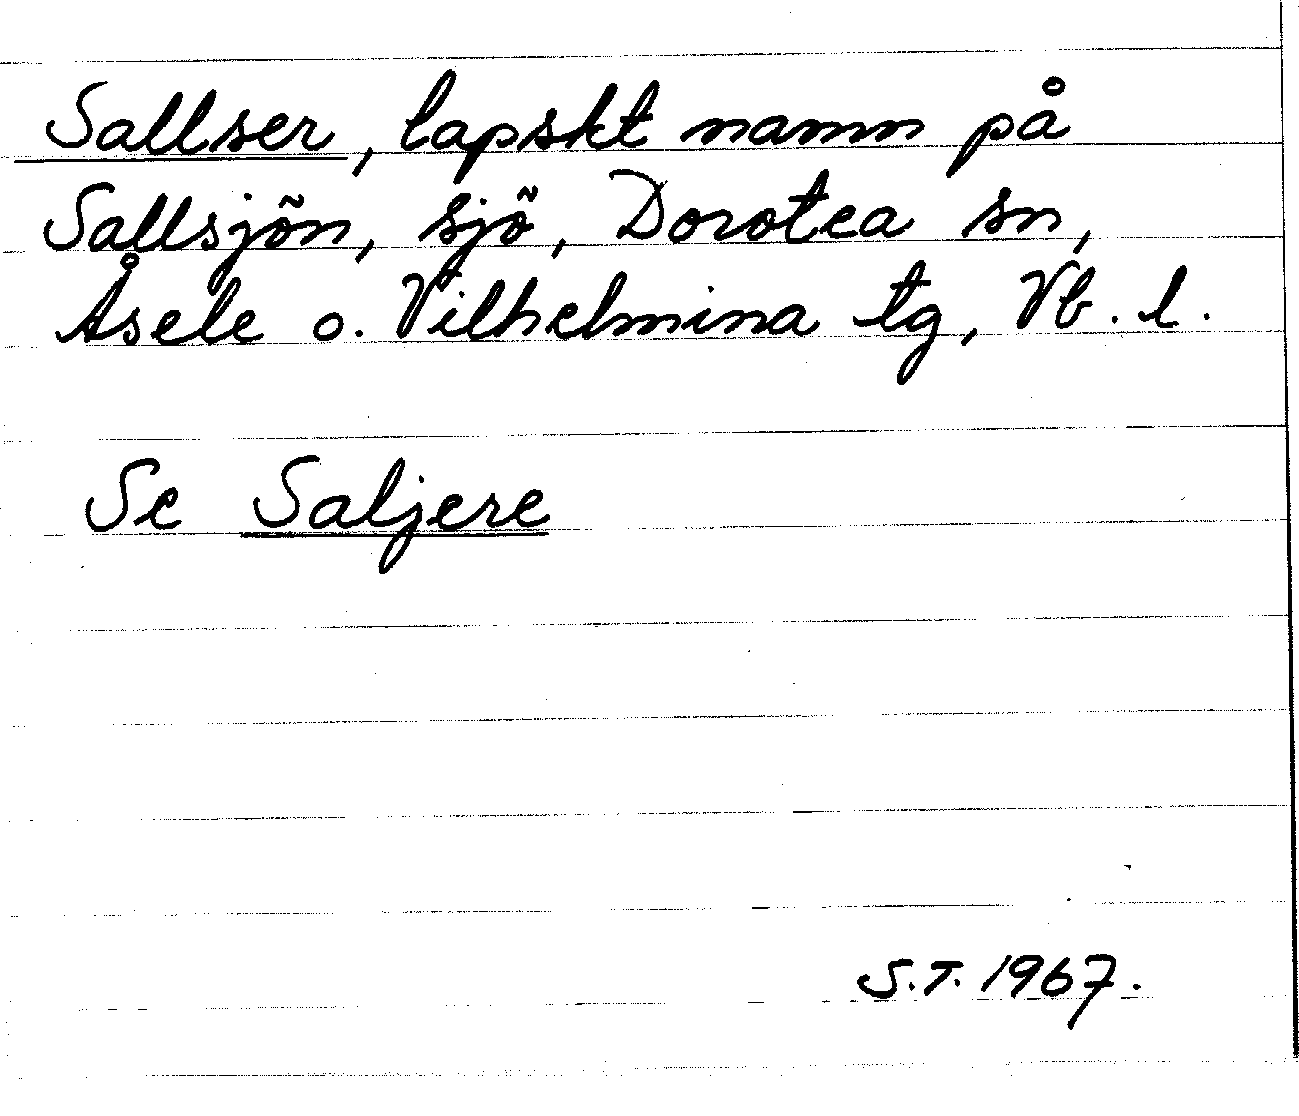 Sallser, lapskt namn på
Sallsjön, sjö, Dorotea sn,
Åsele o. Vilhelmina tg, Vb. l.
Se Saljere
S.T. 1967.